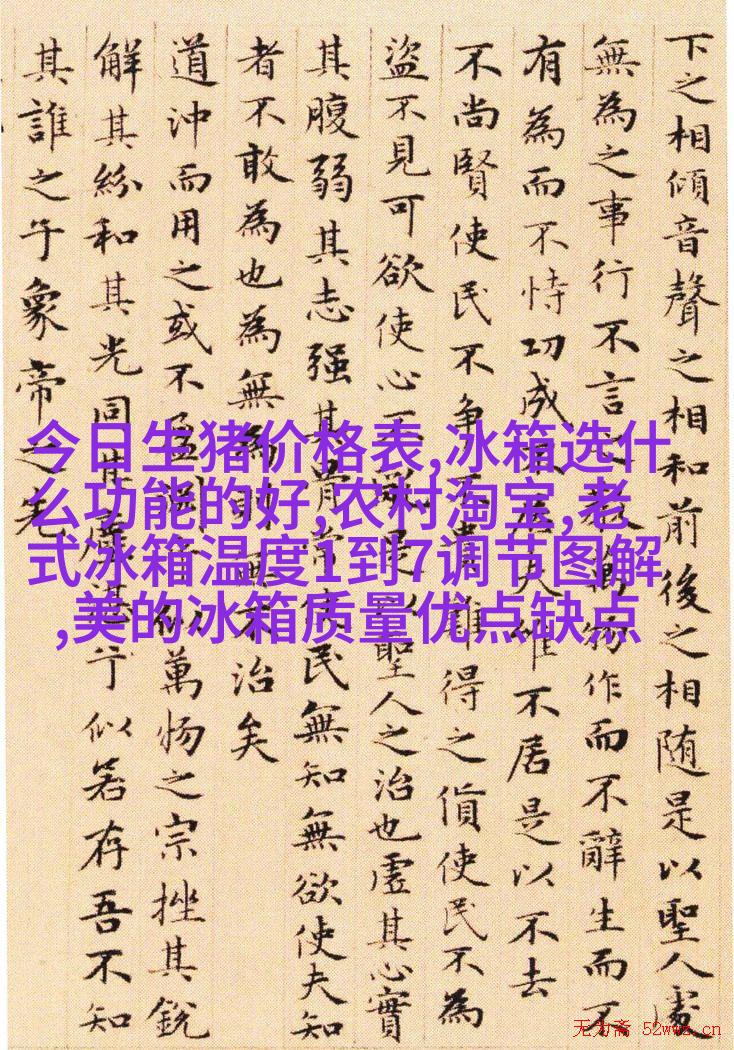 下之相傾音聲之相和前後之相随是以聖人處
無為之事行不言之教萬物作而不辭生而不
有為而不恃功成夫唯不居是以不去
不尚賢使民不争不貴難得之貨使民不為
盗不見可欲使心不是以聖人之治也虛其心實
其腹弱其志强其骨常使民無知無欲使夫知
者不敢為也為無為則無不治矣
道沖而用之或不盈似萬物之宗挫其銳
解其紛和其光同其塵湛兮似若存吾不知
其誰之子象帝之先
今日生猪价格表,冰箱选什
么功能的好,农村淘宝,老
式冰箱温度1到7调节图解
,美的冰箱质量优点缺点
无为斋 52wwz.cn